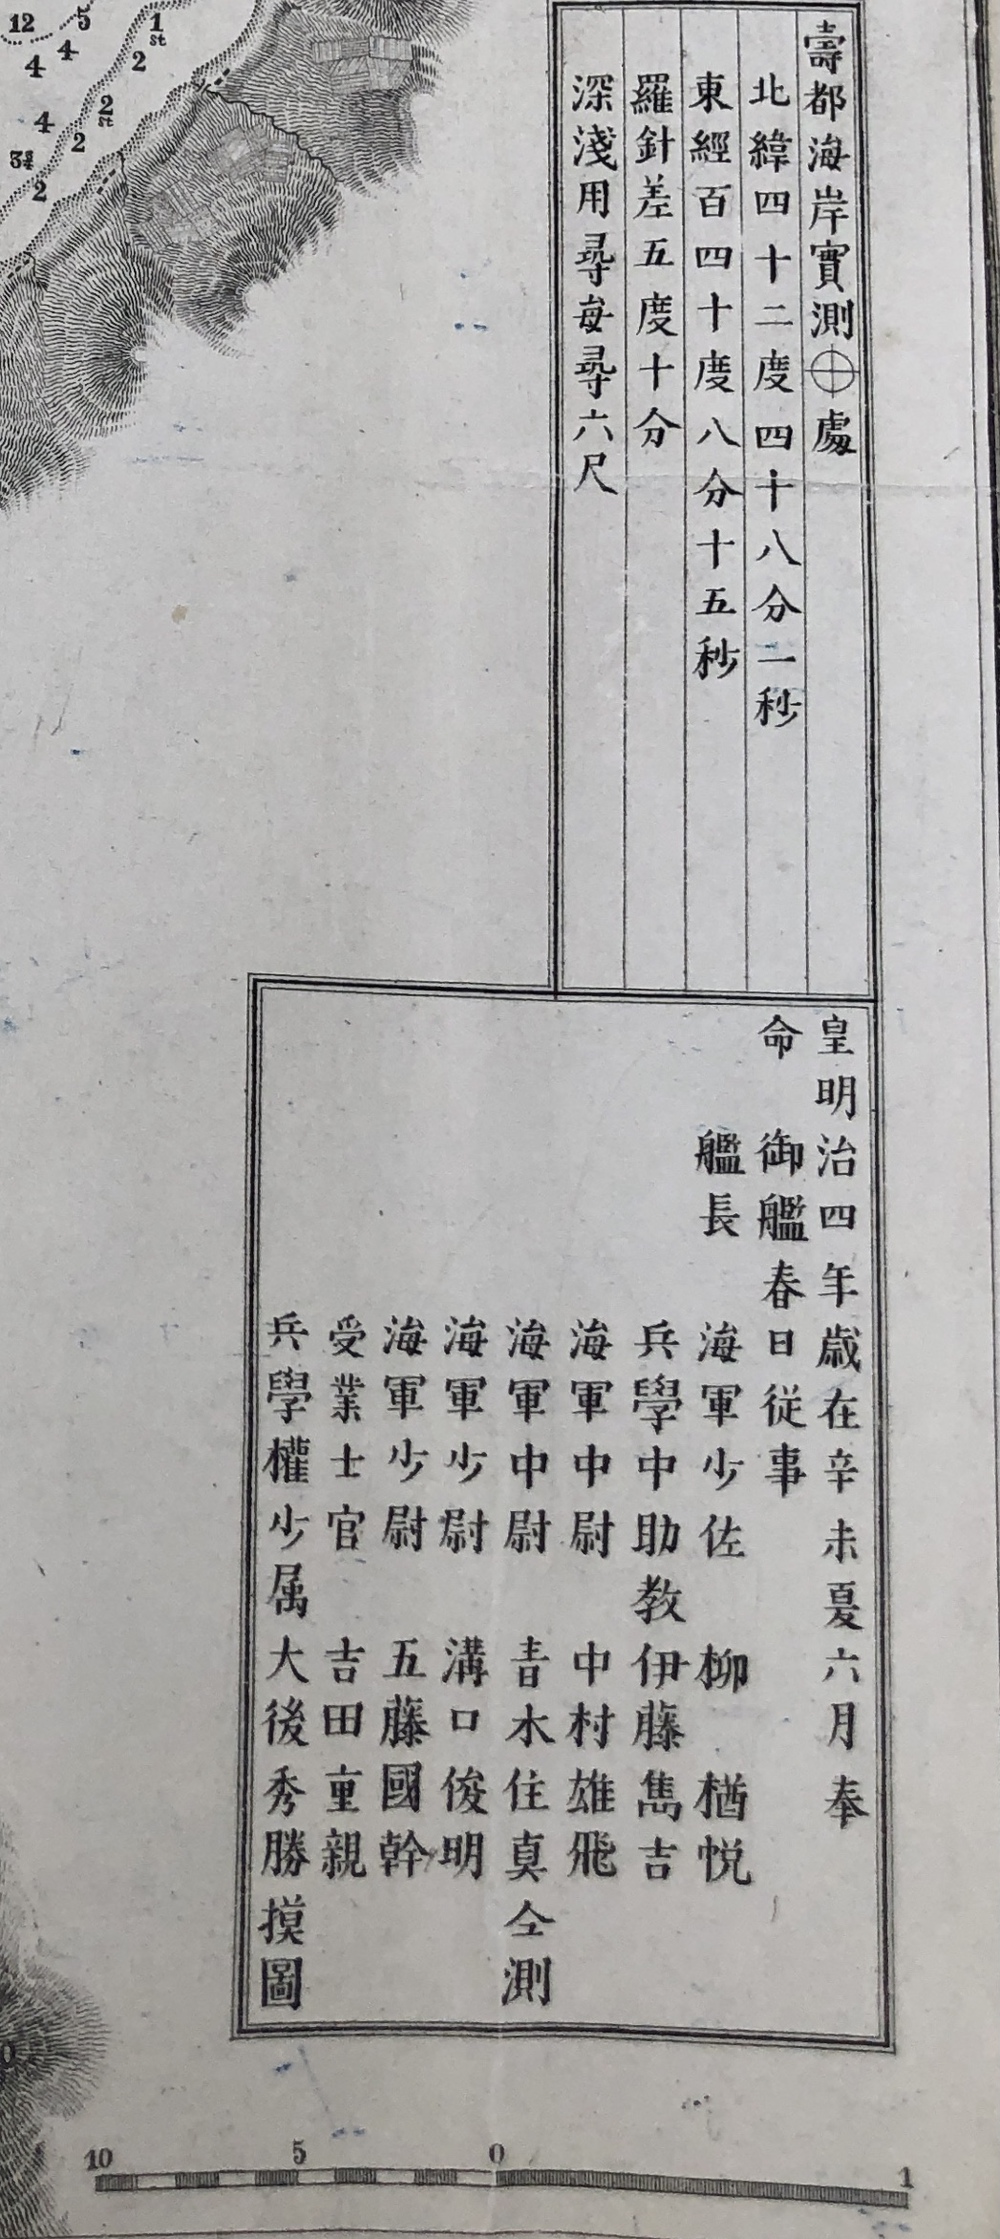 壽都海岸實測⊕處
北緯四十二度四十八分一秒
東經百四十度八分十五秒
羅針差五度十分
深淺用尋每尋六尺
皇明治四年歳在辛未夏六月奉
命 御艦春日従事
艦長 海軍少佐 柳 楢悦
兵學中助教 伊藤雋吉
海軍中尉 中村雄飛
海軍中尉 青木住真 仝測
海軍少尉 溝口俊明
海軍少尉 五藤國幹
受業士官 吉田重親
兵學權少属 大後秀勝 摸圖
12 5 1st
4 4 2
4 2st
3¾ 2
2
0
10 5 0 1